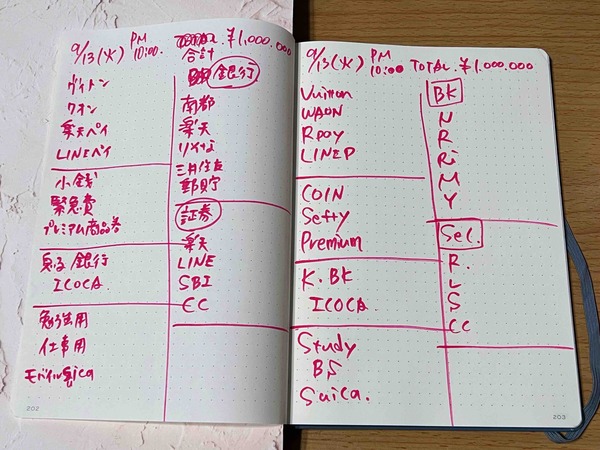 9/13(火) PM 10:00. TOTAL ¥1,000,000
合計
ヴィトン
ワオン
楽天ペイ
LINEペイ
小銭
緊急費
プレミアム商品券
銀行
ICOCA.
勉強用
仕事用
モバイルSuica
銀行
南都
楽天
りそな
三井住友
郵貯
証券
楽天
LINE
SBI
CC
202
9/13(火) PM 10:00 TOTAL. ¥1,000.000
Vuitton
WAON
Rpay
LINEP
COIN
Seftty
Premium
K.BK
ICOCA.
Study
BS
Suica.
BK
N
R
Ri
M
Y
Sec.
R.
L
S
CC
203